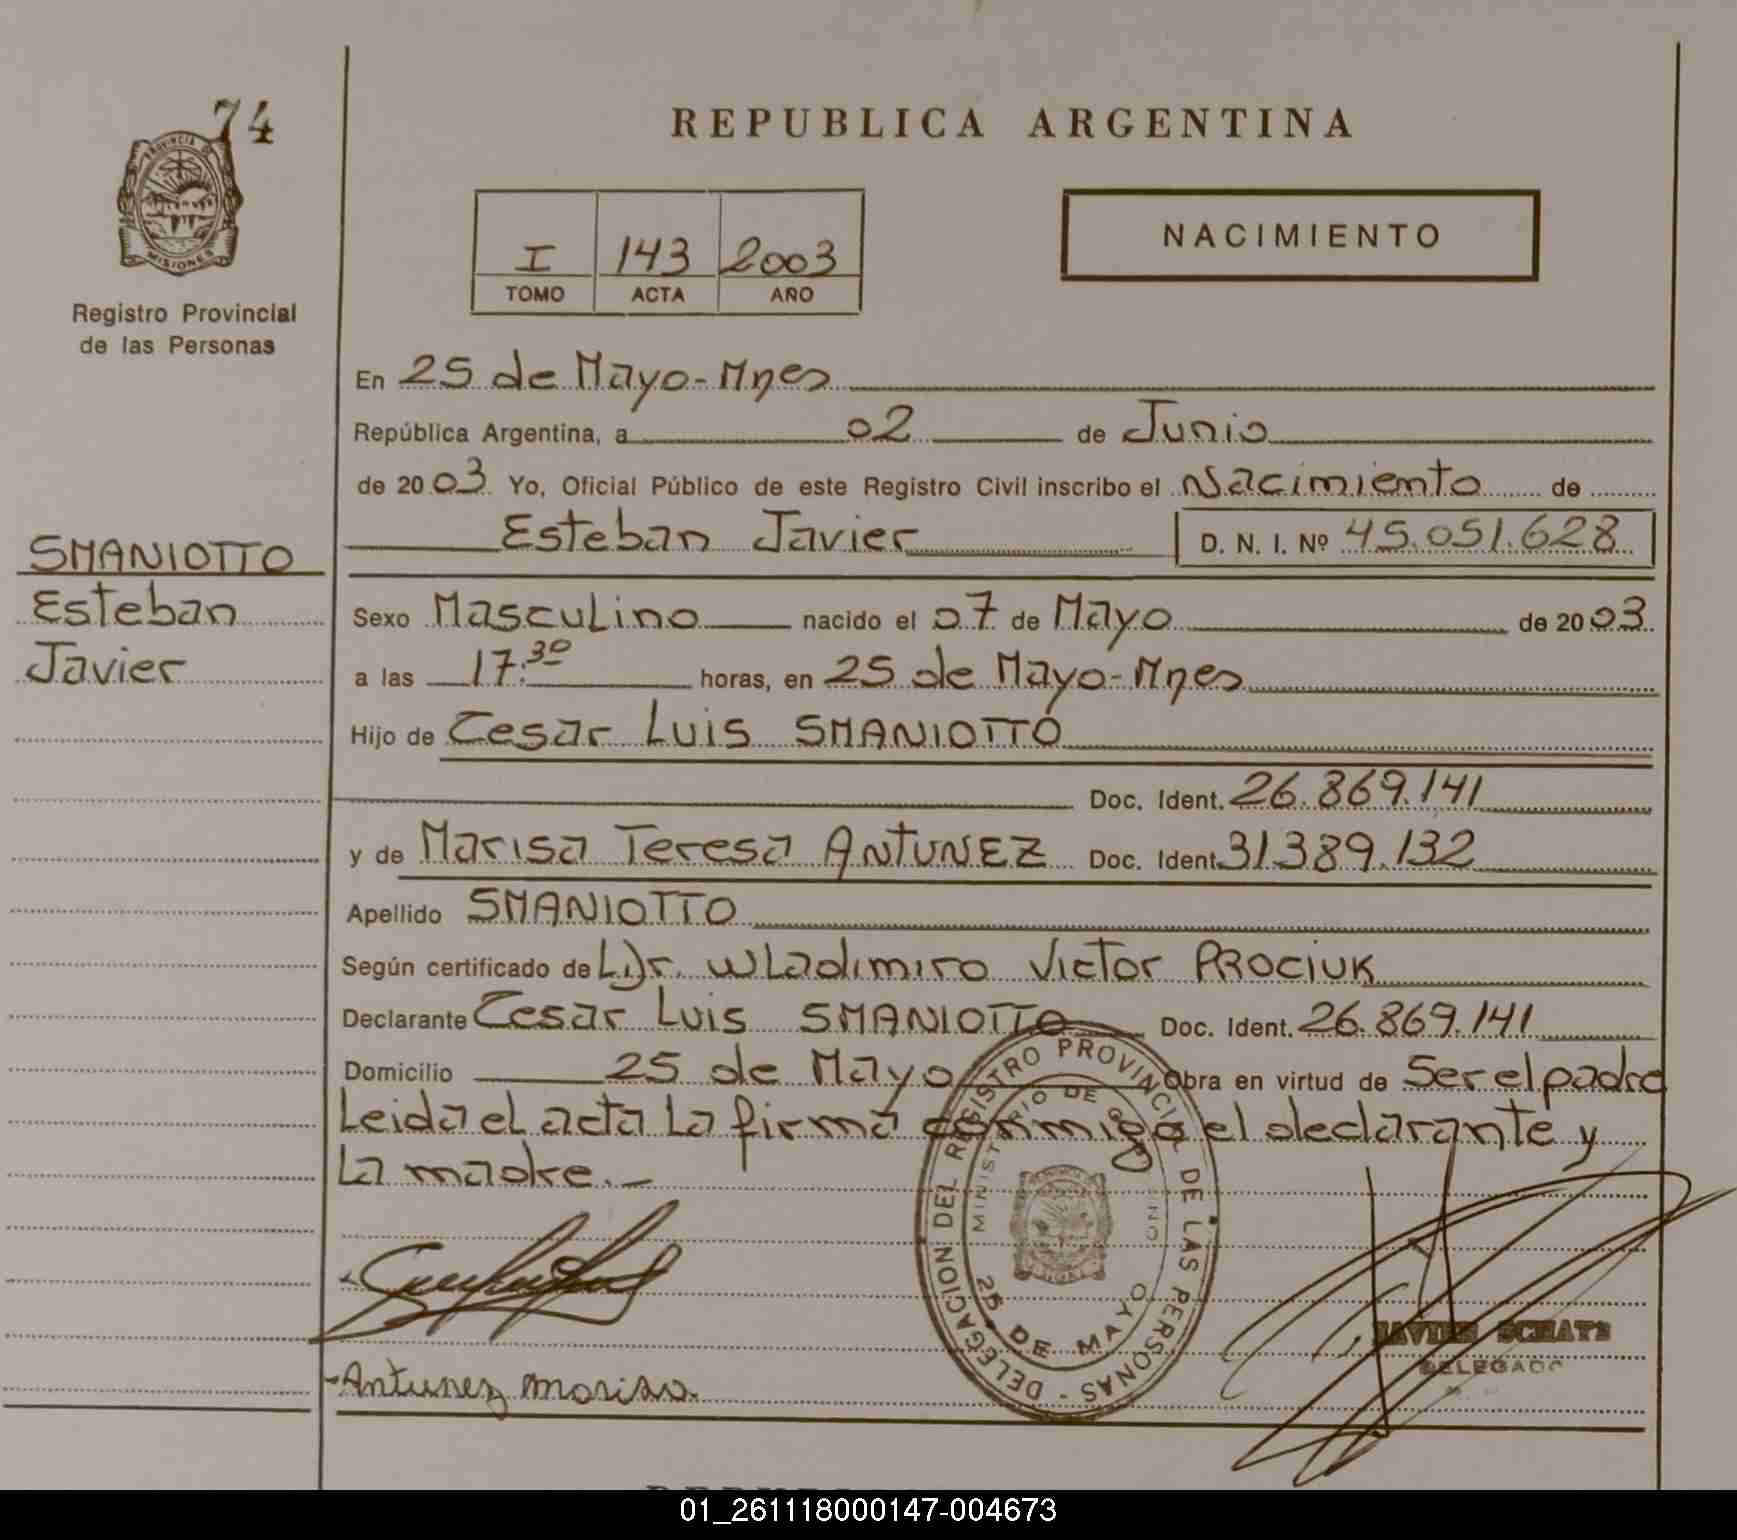 74
PROVINCIA DE
MISIONES
Registro Provincial
de las Personas
SMANIOTTO
Esteban
Javier
REPUBLICA ARGENTINA
I 143 2003
TOMO ACTA AÑO
NACIMIENTO
En 25 de Mayo-Mnes
República Argentina, a 02 de Junio
de 2003 Yo, Oficial Público de este Registro Civil inscribo el Nacimiento de
Esteban Javier D. N. I. Nº 45.051.628
Sexo Masculino nacido el 07 de Mayo de 2003
a las 17:30 horas, en 25 de Mayo-Mnes
Hijo de Cesar Luis SMANIOTTO
Doc. Ident. 26.869.141
y de Marisa Teresa ANTUNEZ Doc. Ident. 31.389.132
Apellido SMANIOTTO
Según certificado de Dr. Wladimiro Victor PROCIUK
Declarante Cesar Luis SMANIOTTO Doc. Ident. 26.869.141
Domicilio 25 de Mayo Obra en virtud de Ser el padre
Leida el acta La firma conmigo el declarante y
La madre.-
DELEGACION DEL REGISTRO PROVINCIAL DE LAS PERSONAS -
MINISTERIO DE
25 DE MAYO
JAVIER SCHATZ
DELEGADO
Antunez marisa.
01_261118000147-004673